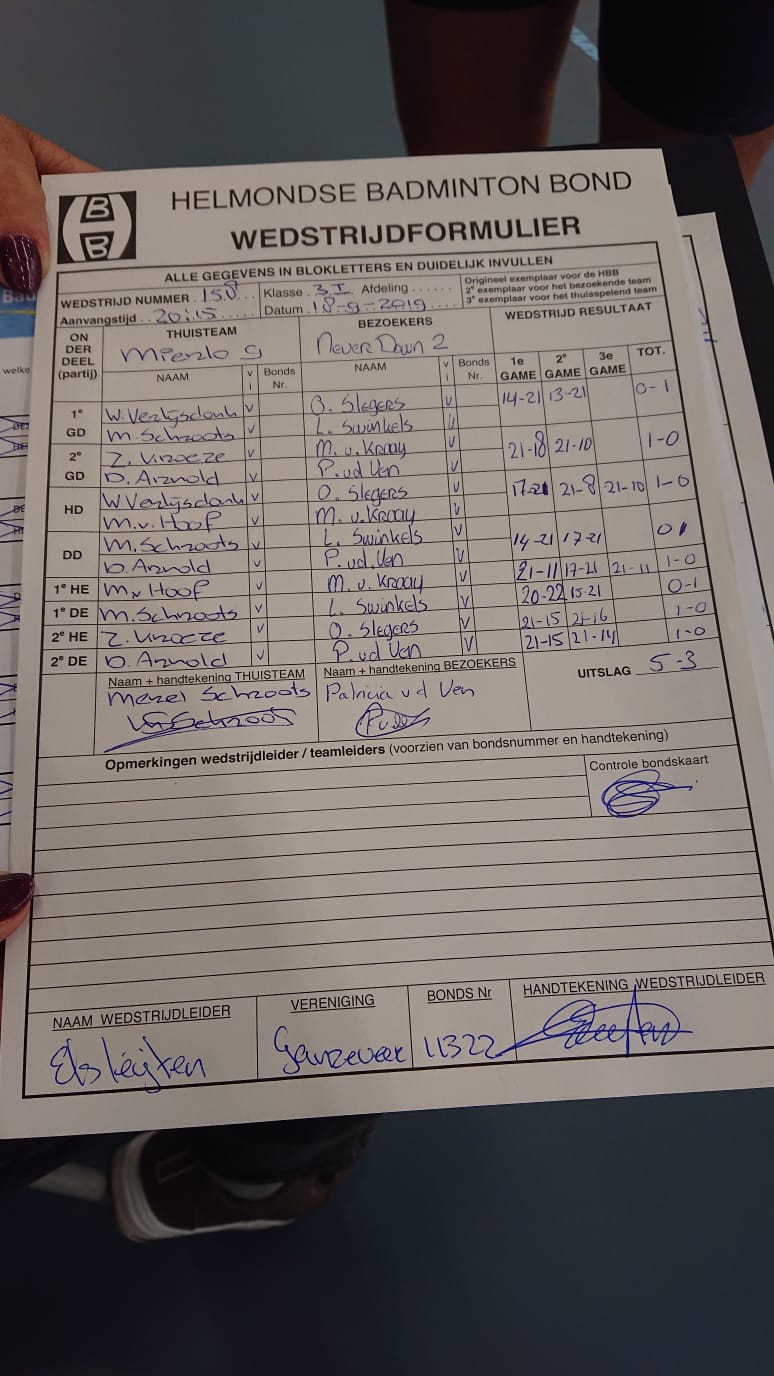 HELMONDSE BADMINTON BOND
WEDSTRIJDFORMULIER
ALLE GEGEVENS IN BLOKLETTERS EN DUIDELIJK INVULLEN
WEDSTRIJD NUMMER . 158 Klasse . 3 I . Afdeling . . . . . . Origineel exemplaar voor de HBB
Aanvangstijd . . 20:15 . . . . . Datum . 18-9-2019 . . . . 2e exemplaar voor de bezoekende team
3e exemplaar voor het thuisspelend team
ON DER DEEL (partij) THUISTEAM BEZOEKERS WEDSTRIJD RESULTAAT
Mierlo 9 Never Down 2
NAAM v i Bonds Nr. NAAM v i Bonds Nr. 1e GAME 2e GAME 3e GAME TOT.
1e GD W. Verlijsdonk v O. Slegers v 14-21 13-21 0-1
M. Schroots v L. Swinkels v
2e GD Z. Vroeze v M. v. Kraay v 21-18 21-10 1-0
D. Arnold v P. vd Ven v
HD W Verlijsdonk v O. Slegers v 17-21 21-8 21-10 1-0
M. v. Hoof v M. v. Kraay v
DD M. Schroots v L. Swinkels v 14-21 17-21 0 1
D. Arnold v P. vd Ven v
1e HE M v Hoof v M. v. Kraay v 21-11 17-21 21-11 1-0
1e DE M. Schroots v L. Swinkels v 20-22 15-21 0-1
2e HE Z. Vroeze v O. Slegers v 21-15 21-16 1-0
2e DE D. Arnold v P. vd Ven v 21-15 21-14 1-0
Naam + handtekening THUISTEAM Naam + handtekening BEZOEKERS UITSLAG 5-3
Merel Schroots Patricia vd Ven
Opmerkingen wedstrijdleider / teamleiders (voorzien van bondsnummer en handtekening)
Controle bondskaart
NAAM WEDSTRIJDLEIDER VERENIGING BONDS Nr HANDTEKENING WEDSTRIJDLEIDER
Els Leijten Ganzeveer 11322
welke